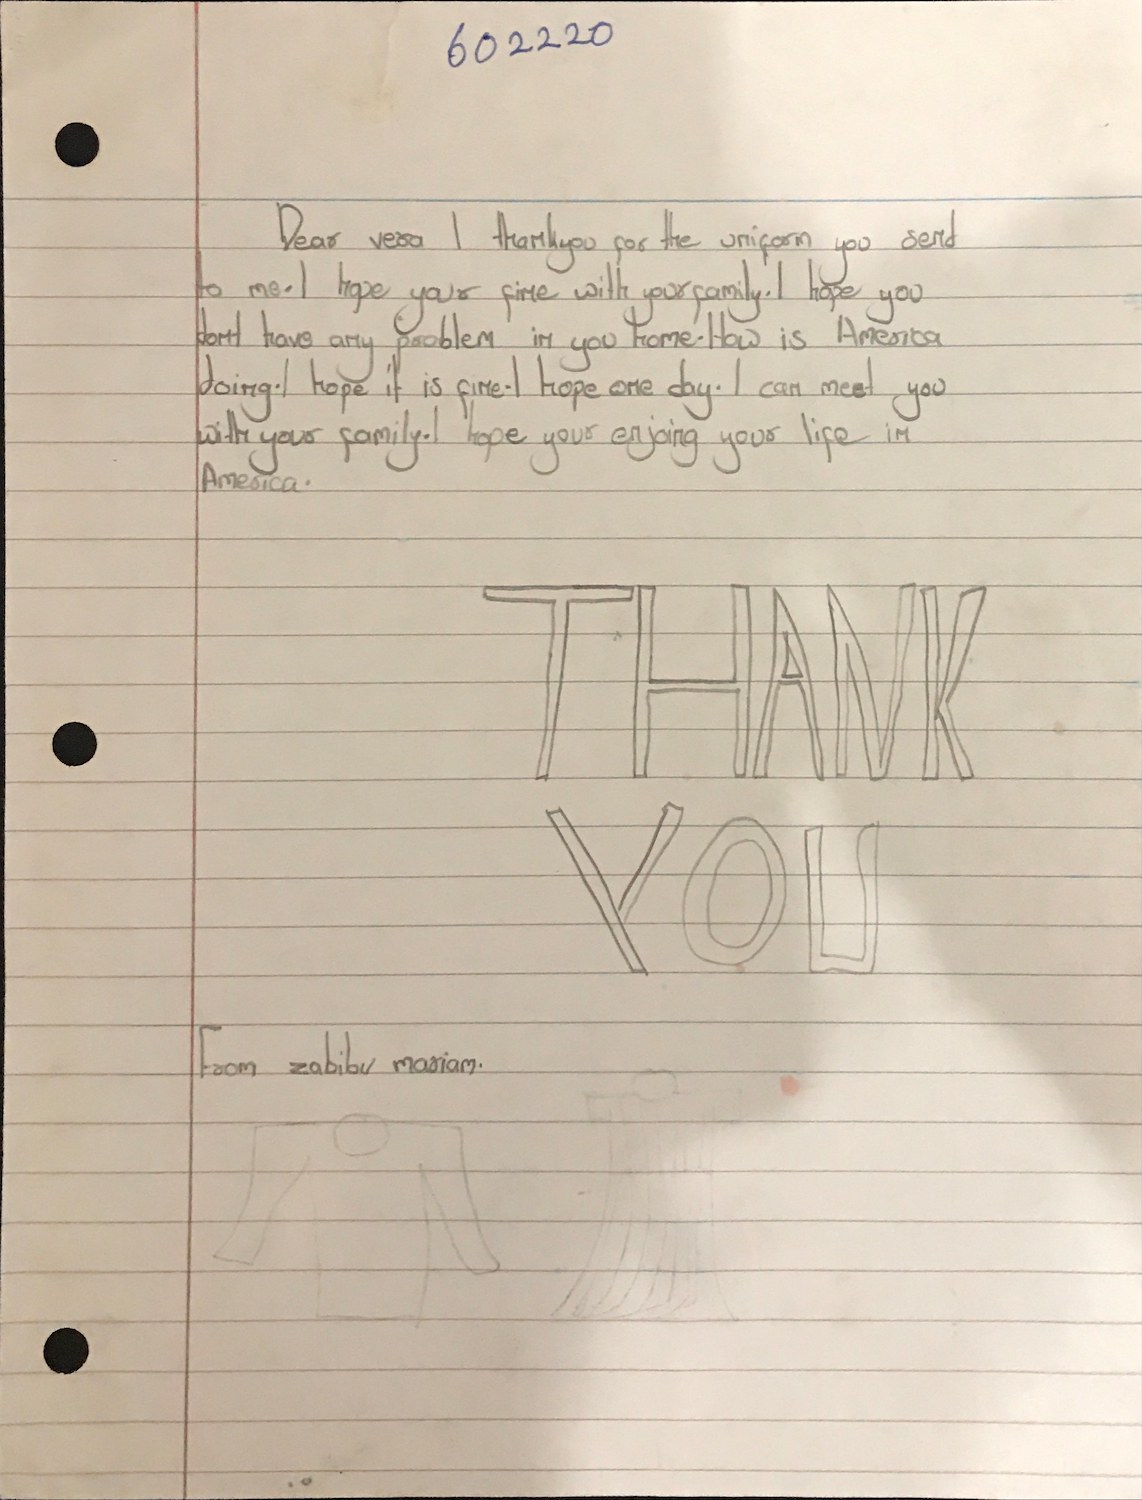 602220
Dear vera I thankyou for the uniform you send
to me.I hope your fine with your family.I hope you
dont have any problem in you home.How is America
doing.I hope it is fine.I hope one day.I can meet you
with your family.I hope your enjoing your life in
America.
THANK
YOU
From zabibu mariam.